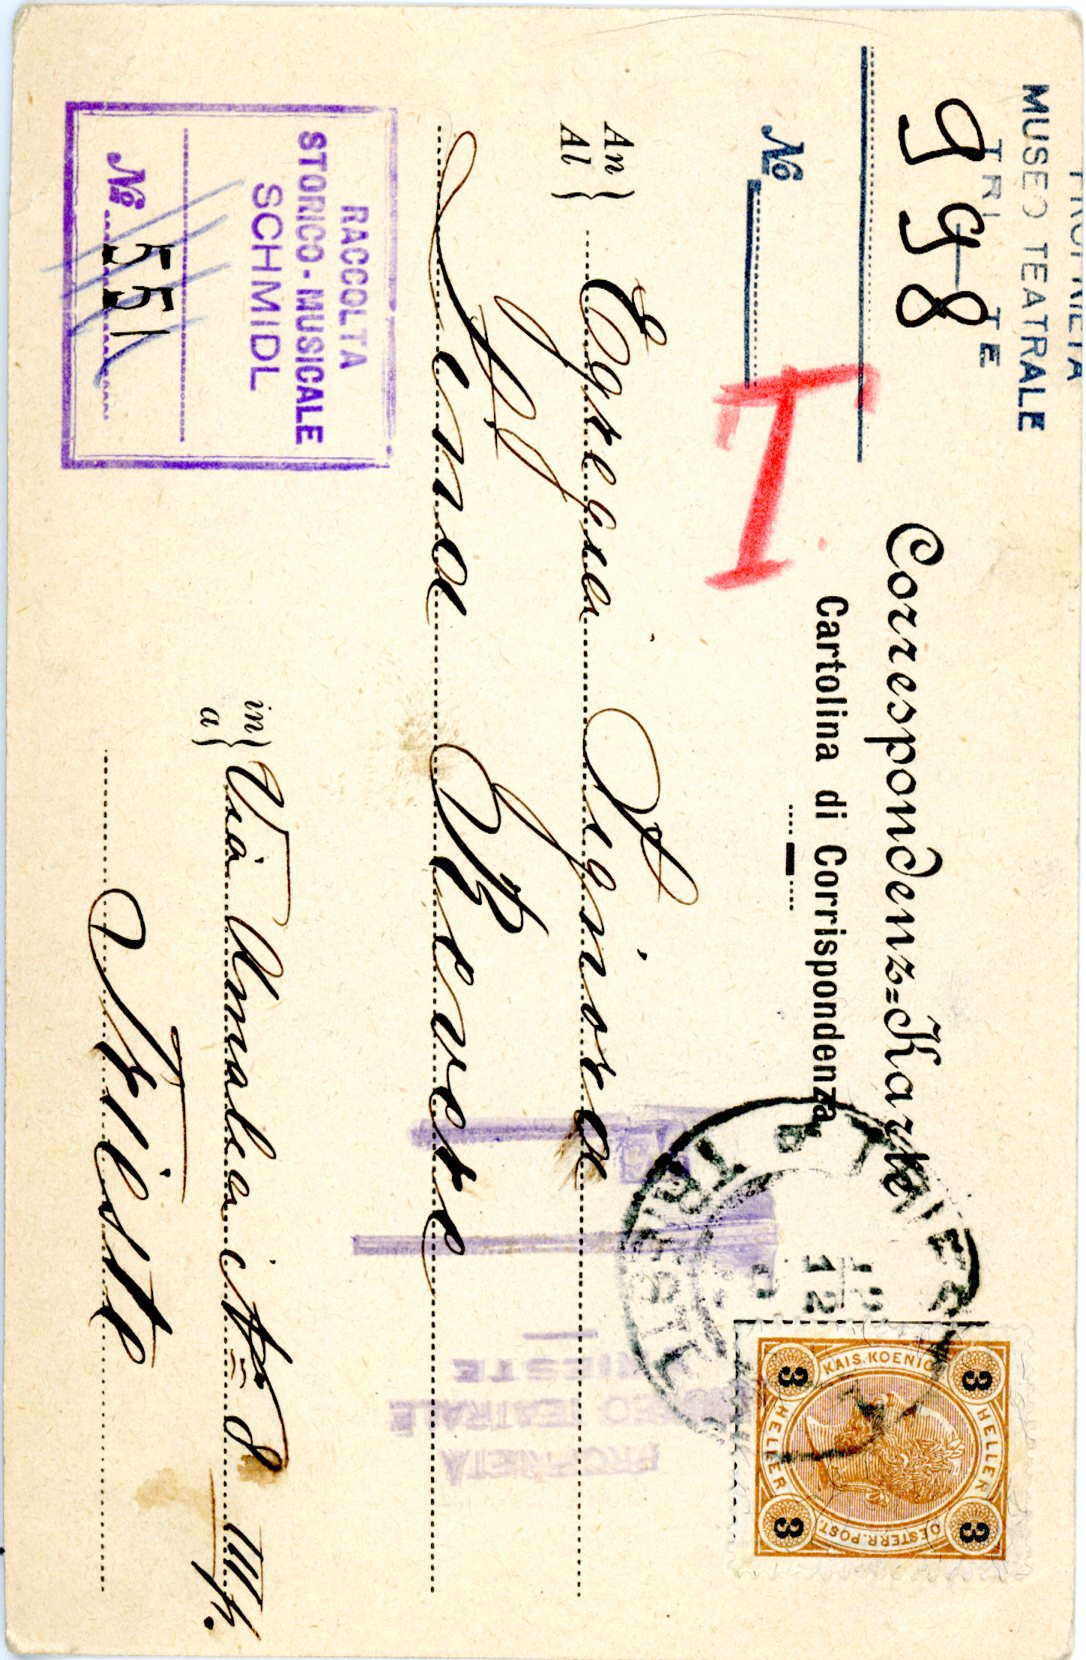 PROPRIETÀ
MUSEO TEATRALE
TRI TE
998
No
T
Correspondenz-Karte
Cartolina di Corrispondenza
TRIEST
TRIESTE
12
12
KAIS. KOENIGL.
OESTERR. POST.
HELLER
HELLER
3
3
3
3
An
Al
Egregia Signora
Gina Revere
in
a
Via Amalia No 8 III p.
Trieste
RACCOLTA
STORICO-MUSICALE
SCHMIDL
No. 551
PROPRIETÀ
MUSEO TEATRALE
TRIESTE